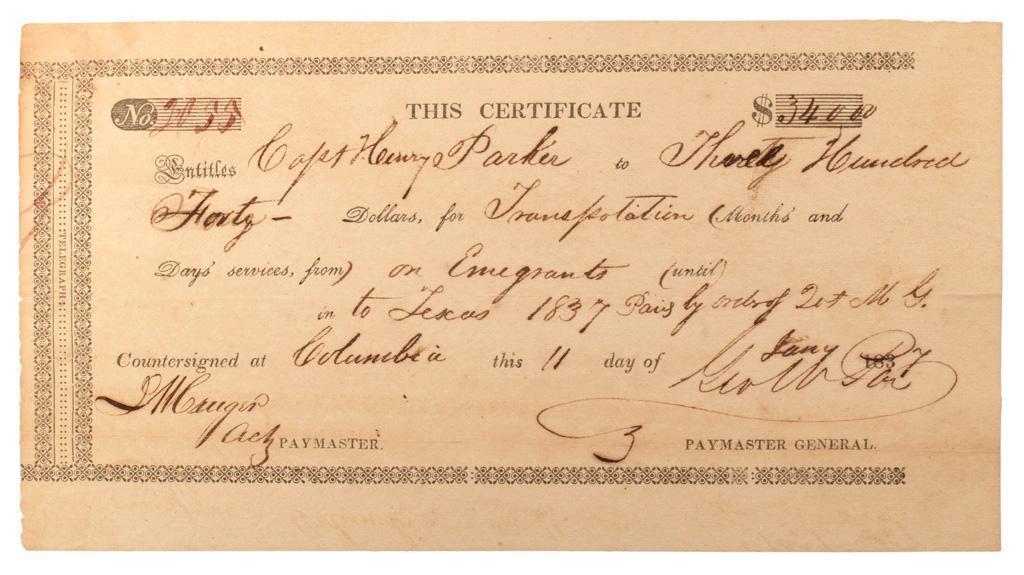 No. 2055 THIS CERTIFICATE $340 00
Entitles Capt Henry Parker to Three Hundred
Forty - Dollars, for Transpotation (Months' and
Days' services, from) on Emegrants (until)
in to Texas 1837 Paid by order of M G.
Countersigned at Columbia this 11 day of Jany 1837
Geo W Poe
Actg PAYMASTER.
3 PAYMASTER GENERAL.
TELEGRAPH